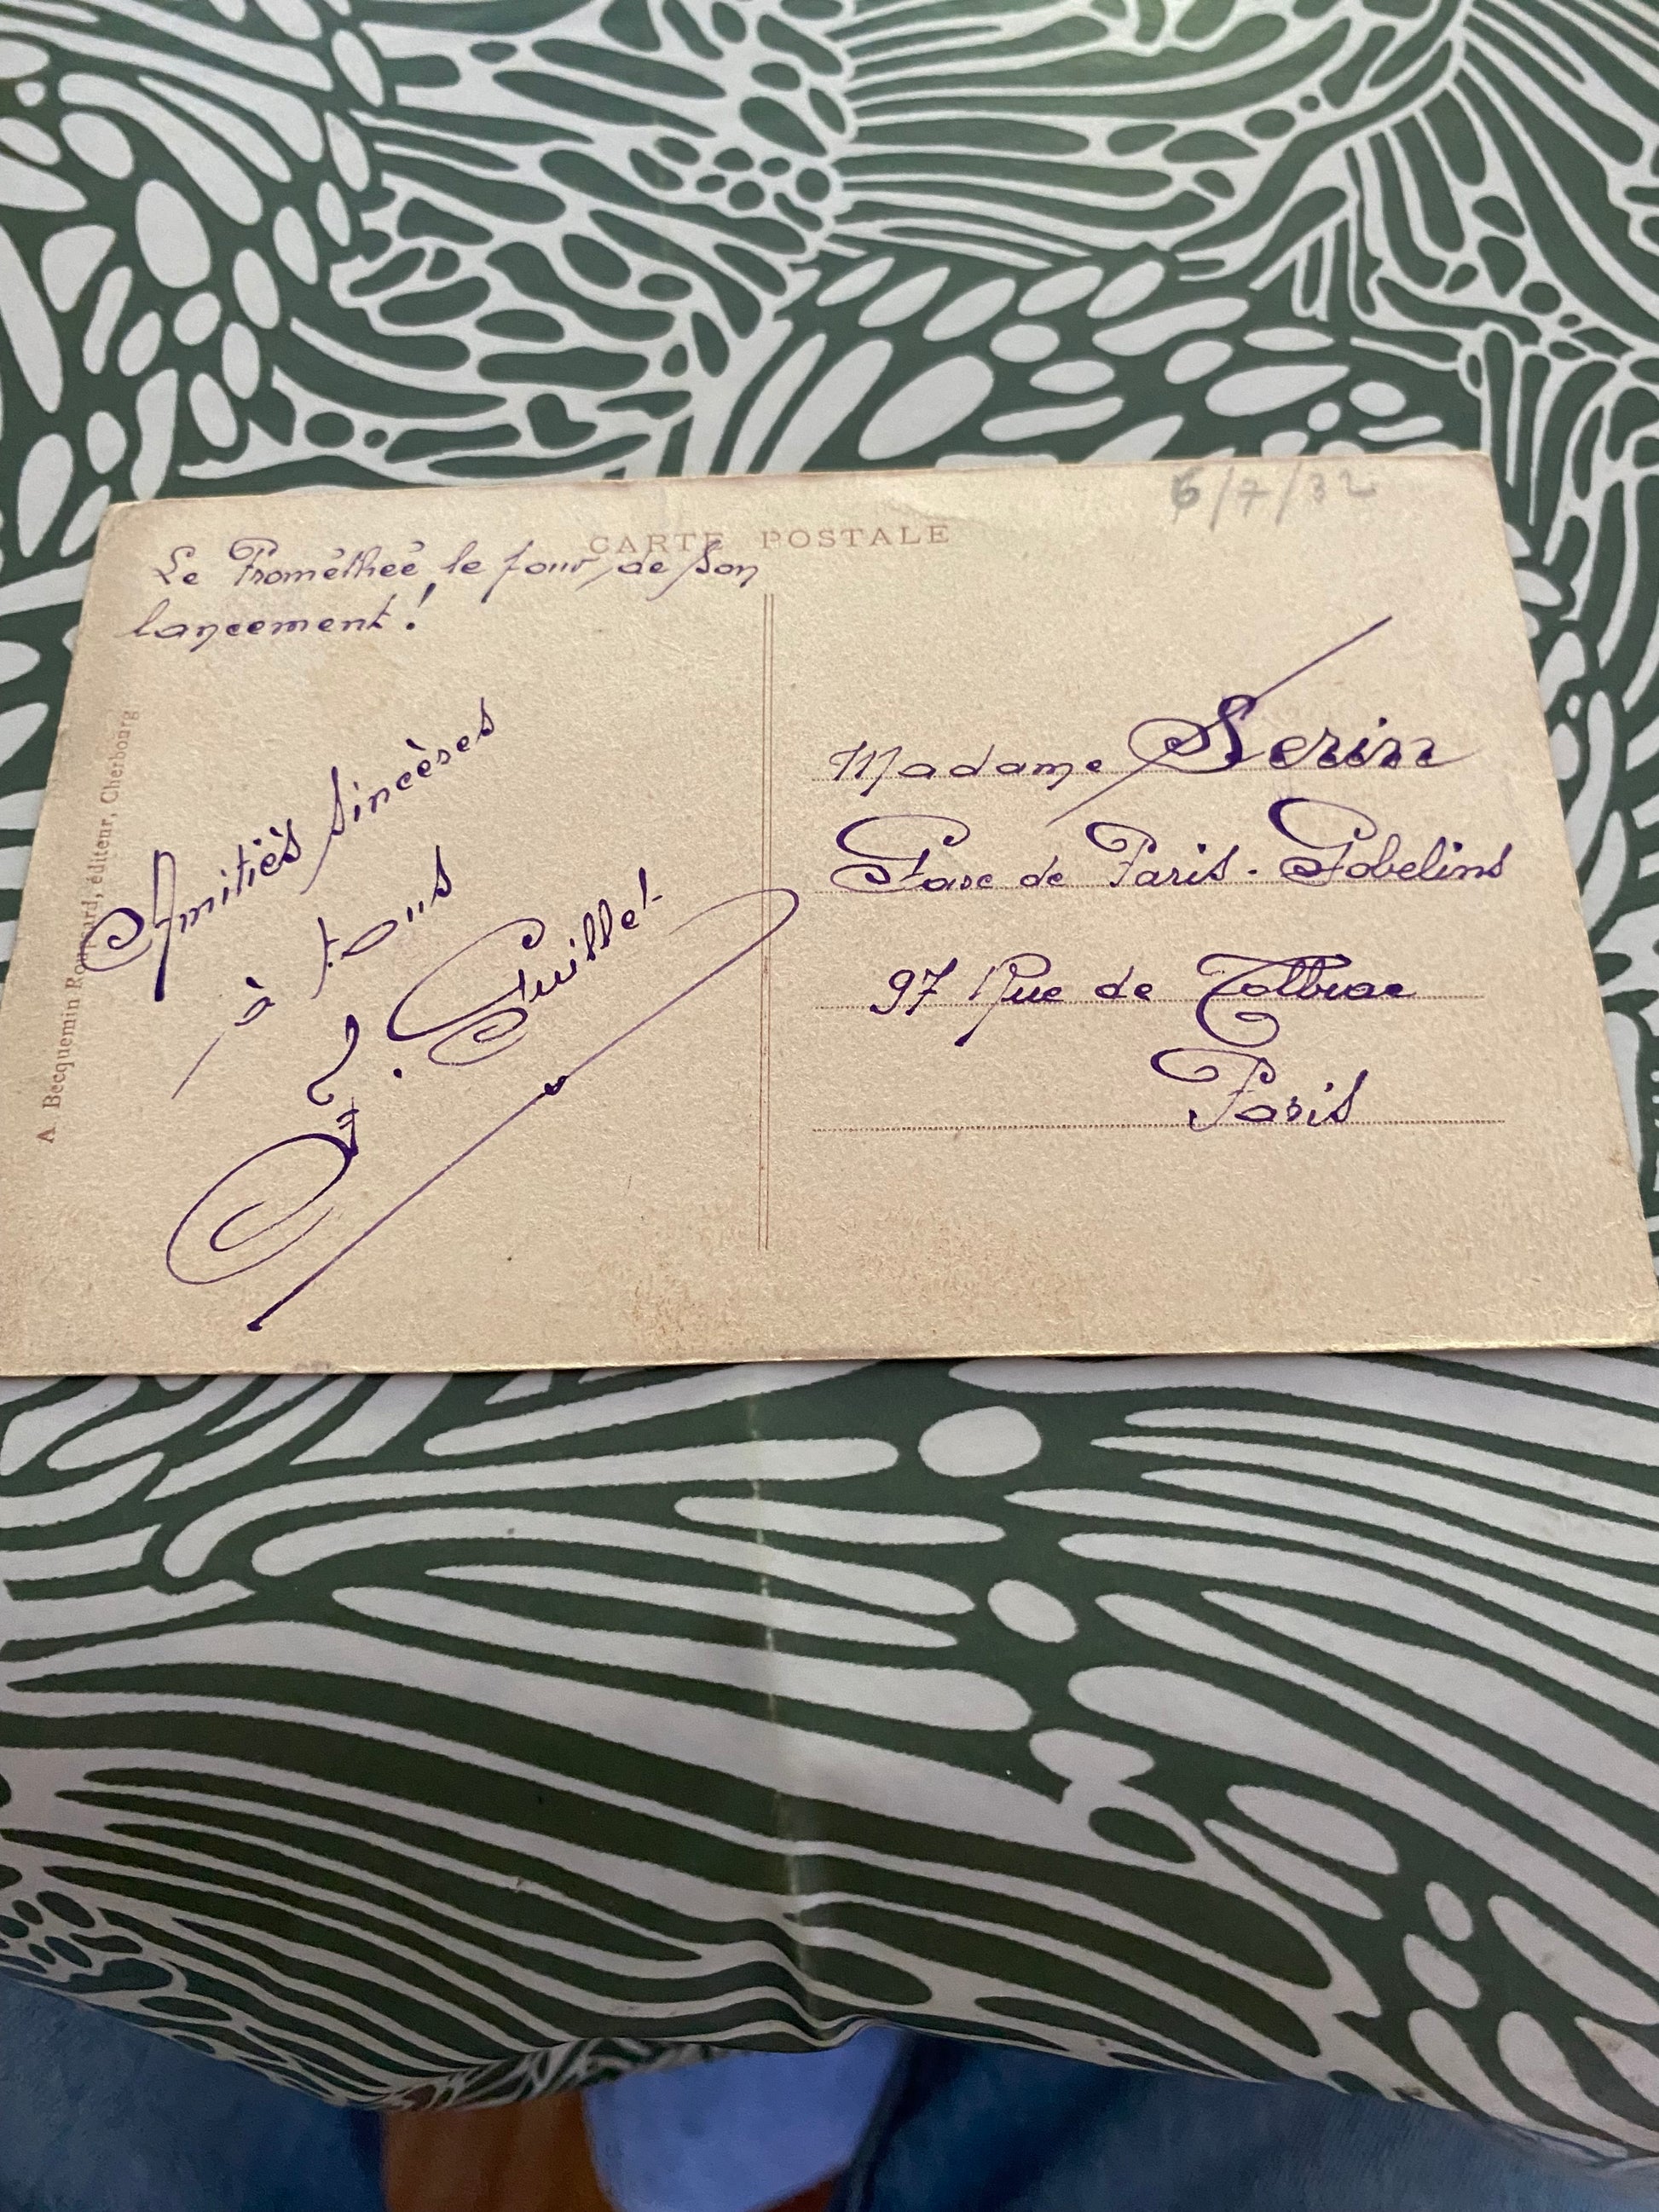 6/7/32
CARTE POSTALE
Le Prométhée le jour de son
lancement !
Amitiés sincères
à tous
Guillet
A. Becquemin éditeur, Cherbourg
Madame Serin
Gare de Paris - Gobelins
97 Rue de Tolbiac
Paris